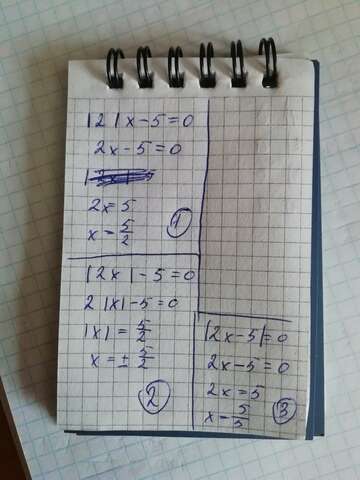 |2|x-5=0
2x-5=0
2x=5
x=5/2
1
|2x|-5=0
2|x|-5=0
|x|=5/2
x=±5/2
2
|2x-5|=0
2x-5=0
2x=5
x=5/5
3